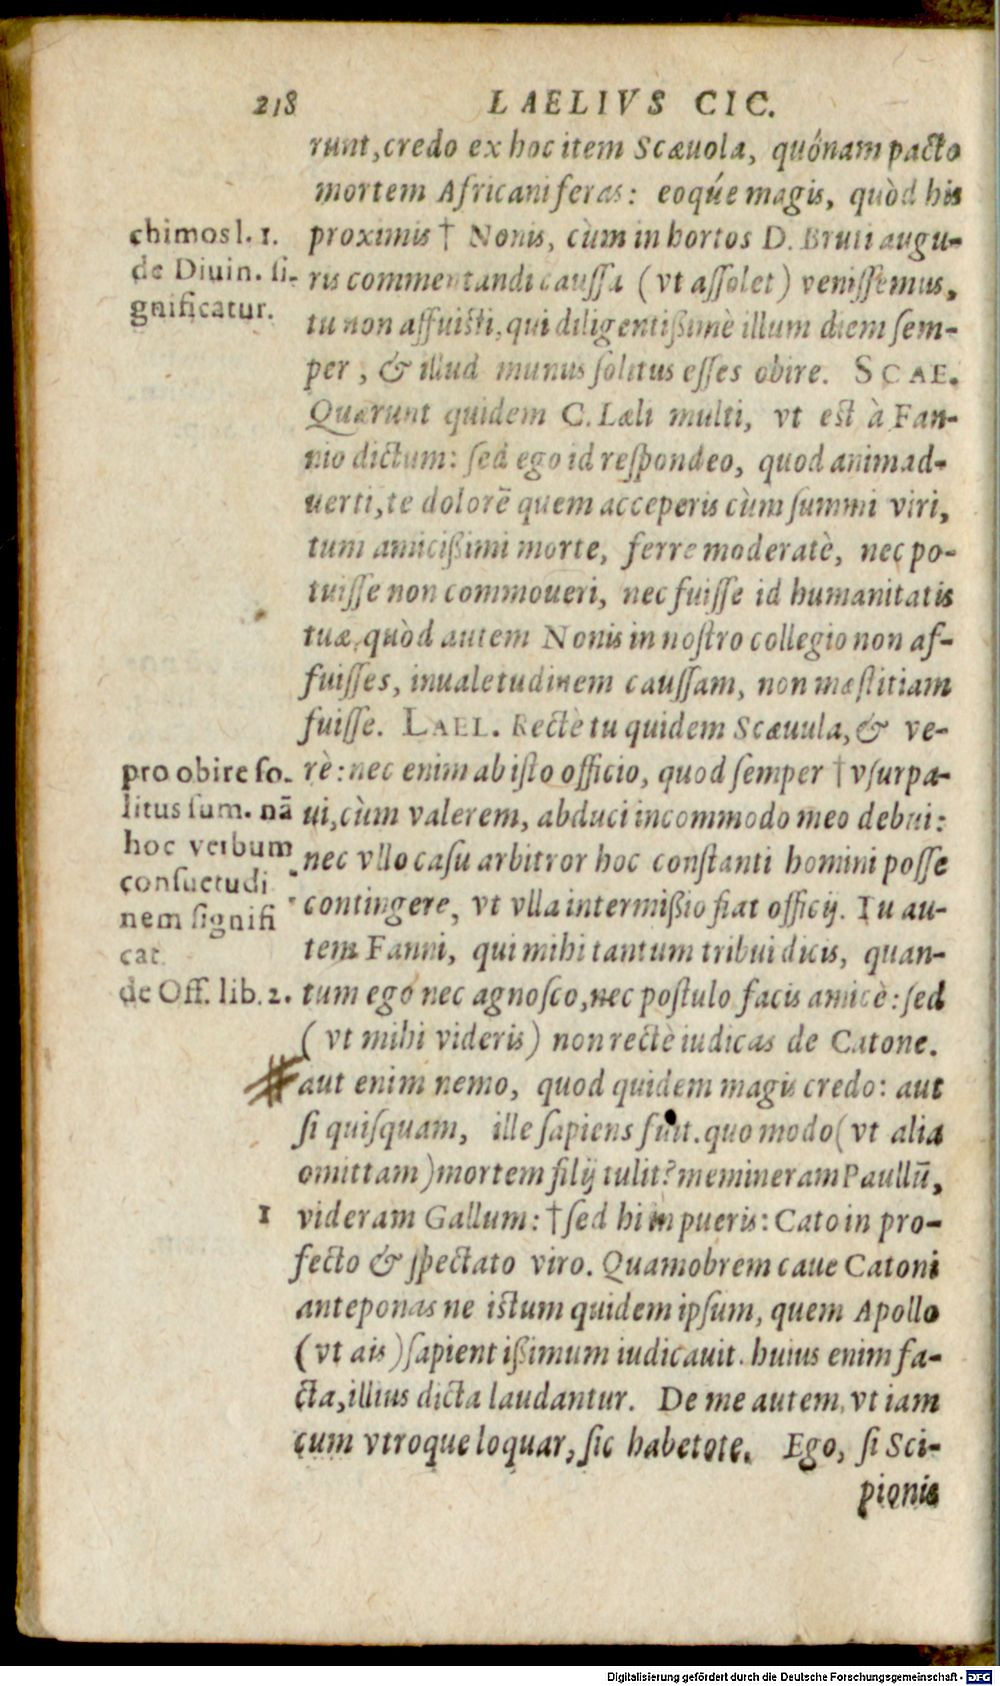 218 LAELIVS CIC.
runt, credo ex hoc item Scæuola, quónam pacto
mortem Africani feras: eoq́ue magis, quòd his
proximis † Nonis, cùm in hortos D. Bruti augu-
ris commentandi caussa (vt assolet) venissemus,
tu non affuisti, qui diligentißimè illum diem sem-
per, & illud munus solitus esses obire. SCAE.
Quærunt quidem C. Læli multi, vt est à Fan-
nio dictum: sed ego id respondeo, quod animad-
uerti, te dolorē quem acceperis cùm summi viri,
tum amicißimi morte, ferre moderatè, nec po-
tuisse non commoueri, nec fuisse id humanitatis
tuæ, quòd autem Nonis in nostro collegio non af-
fuisses, inualetudinem caussam, non mæstitiam
fuisse. LAEL. Rectè tu quidem Scæuula, & ve-
rè: nec enim ab isto officio, quod semper † vsurpa-
ui, cùm valerem, abduci incommodo meo debui:
nec vllo casu arbitror hoc constanti homini posse
contingere, vt vlla intermißio fiat officij. Tu au-
tem Fanni, qui mihi tantum tribui dicis, quan-
tum ego nec agnosco, nec postulo facis amicè: sed
(vt mihi videris) non rectè iudicas de Catone.
aut enim nemo, quod quidem magis credo: aut
si quisquam, ille sapiens fuit. quo modo (vt alia
omittam) mortem filij tulit? memineram Paullū,
videram Gallum: † sed hi in pueris: Cato in pro-
fecto & spectato viro. Quamobrem caue Catoni
anteponas ne istum quidem ipsum, quem Apollo
(vt ais) sapientißimum iudicauit. huius enim fa-
cta, illius dicta laudantur. De me autem, vt iam
cum vtroque loquar, sic habetote. Ego, si Sci-
pionis
chimos l. 1.
de Diuin. si-
gnificatur.
pro obire so-
litus sum. nā
hoc verbum
consuetudi
nem signifi
cat.
de Off. lib. 2.
1
Digitalisierung gefördert durch die Deutsche Forschungsgemeinschaft - DFG